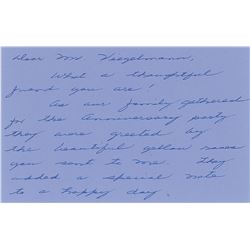 Dear Mr. Vogelmann,
What a thoughtful
friend you are!
As our family gathered
for the Anniversary party
they were greeted by
the beautiful yellow roses
you sent to me. They
added a special note
to a happy day.